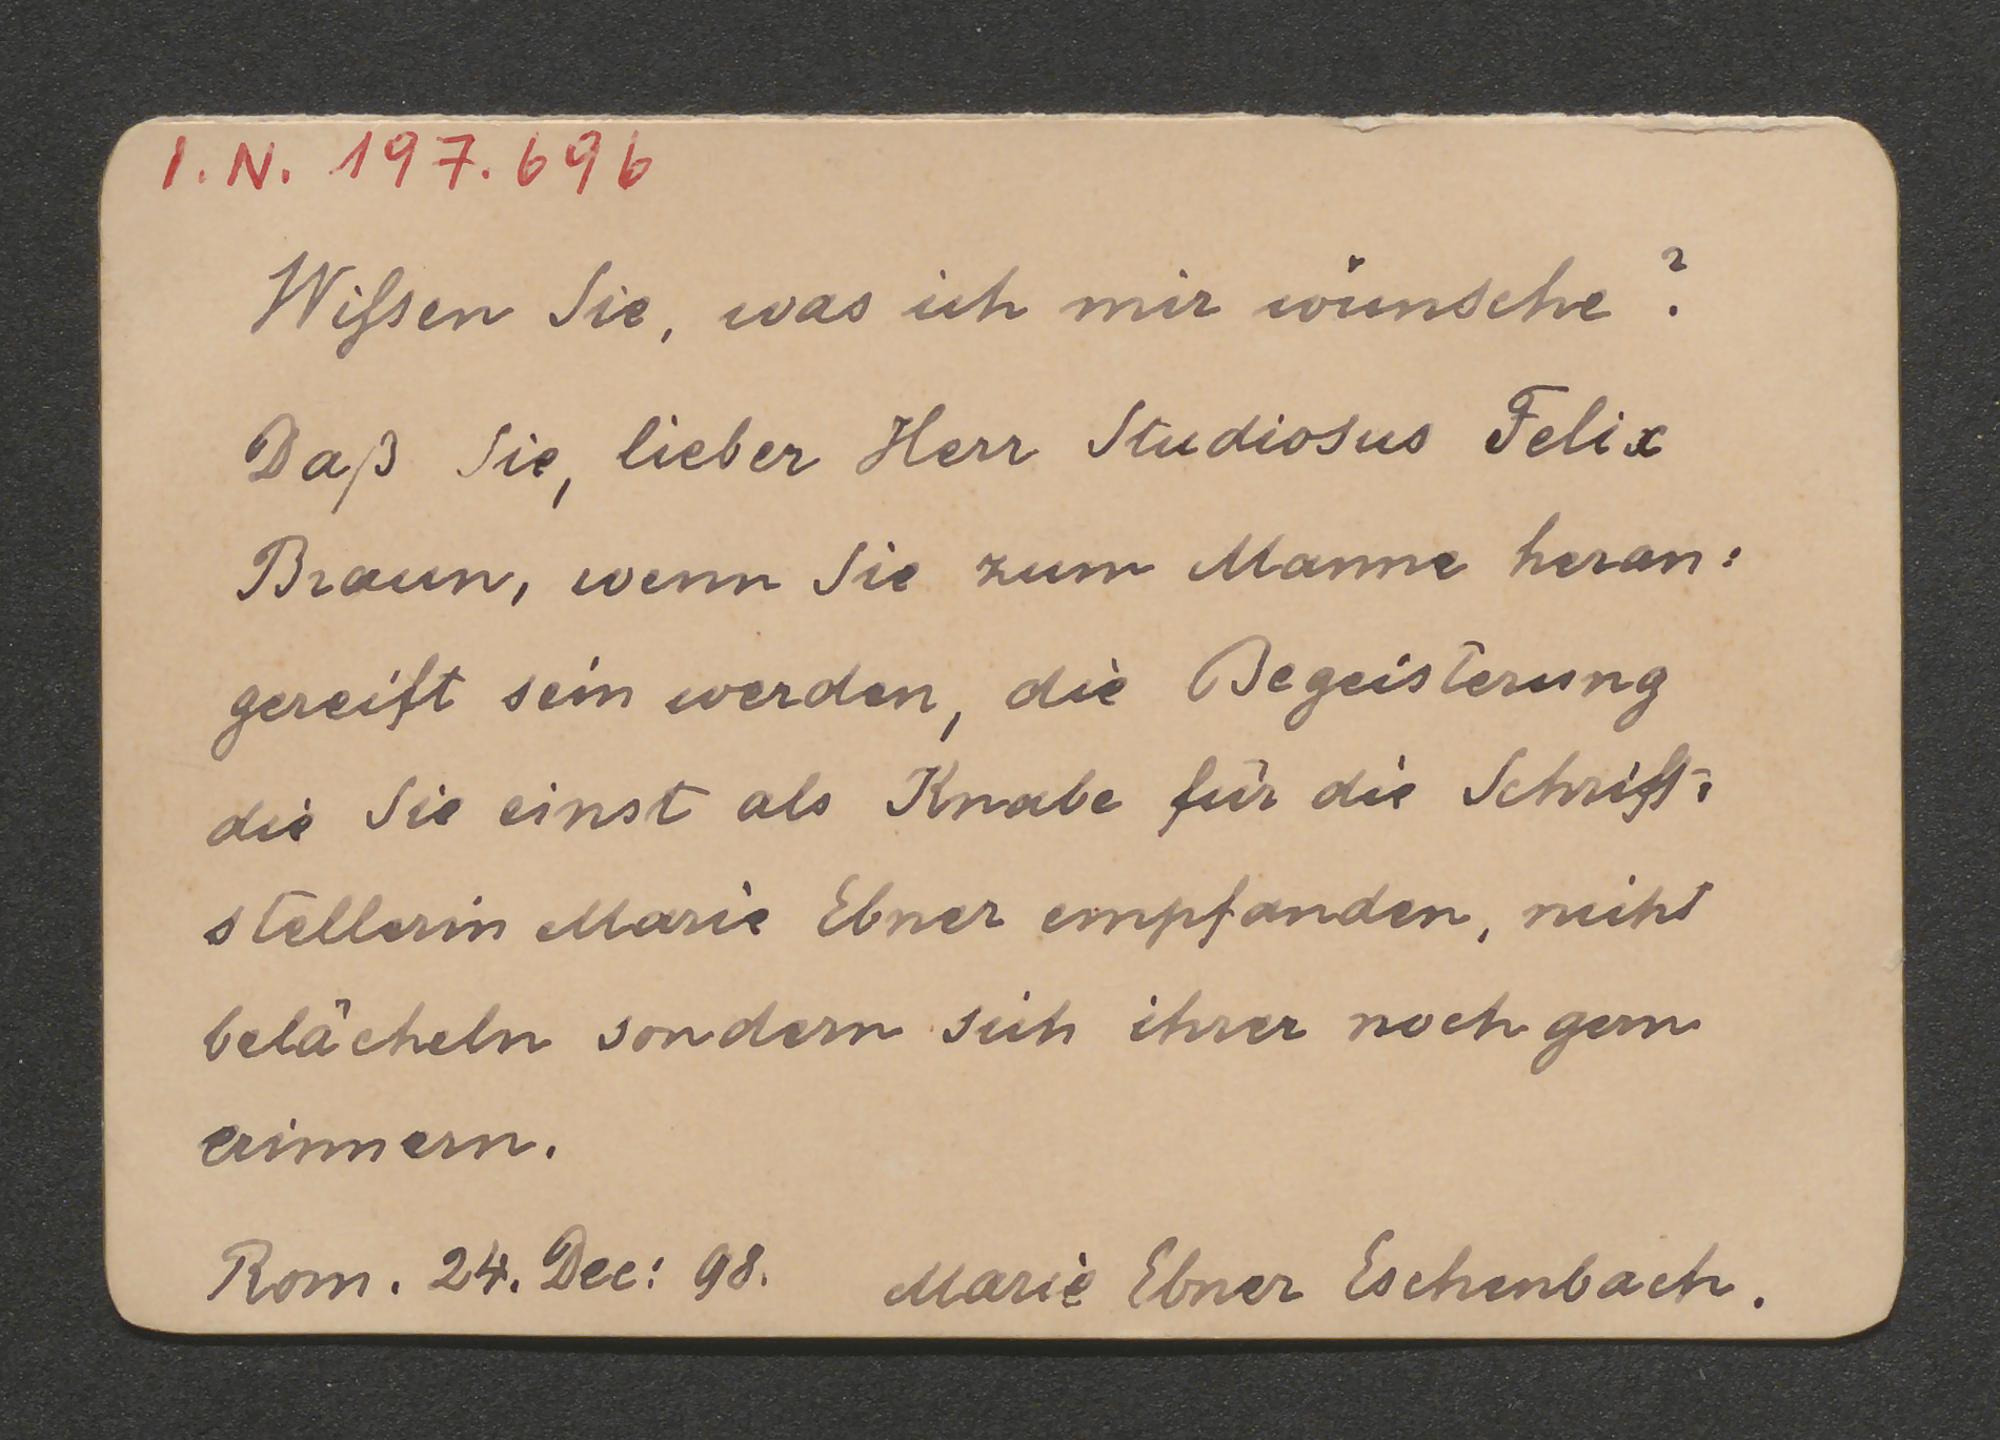 I.N. 197.696
Wiſsen Sie, was ich mir wünsche?
Daß Sie, lieber Herr Studiosus Felix
Braun, wenn Sie zum Manne heran:
gereift sein werden, die Begeisterung
die Sie einst als Knabe für die Schrift:
stellerin Marie Ebner empfanden, nicht
belächeln sondern sich ihrer noch gern
erinnern.
Rom. 24. Dec: 98. Marie Ebner Eschenbach.